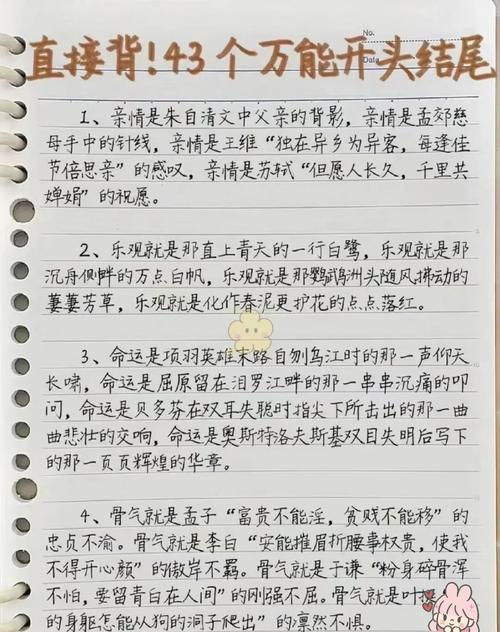 直接背!43个万能开头结尾
No.
Date
1、亲情是朱自清文中父亲的背影，亲情是孟郊慈
母手中的针线，亲情是王维“独在异乡为异客，每逢佳
节倍思亲”的感叹，亲情是苏轼“但愿人长久，千里共
婵娟”的祝愿。
2、乐观就是那直上青天的一行白鹭，乐观就是那
沉舟侧畔的万点白帆，乐观就是那鹦鹉洲头随风拂动的
萋萋芳草，乐观就是化作春泥更护花的点点落红。
3、命运是项羽英雄末路自刎乌江时的那一声仰天
长啸，命运是屈原留在汨罗江畔的那一串串沉痛的叩
问，命运是贝多芬在双耳失聪时指尖下所击出的那一曲
曲悲壮的交响，命运是奥斯特洛夫斯基双目失明后写下
的那一页页辉煌的华章。
4、骨气就是孟子“富贵不能淫，贫贱不能移”的
忠贞不渝。骨气就是李白“安能摧眉折腰事权贵，使我
不得开心颜”的傲岸不羁。骨气就是于谦“粉身碎骨浑
不怕，要留青白在人间”的刚强不屈。骨气就是叶
的身躯怎能从狗的洞子爬出”的凛然不惧。